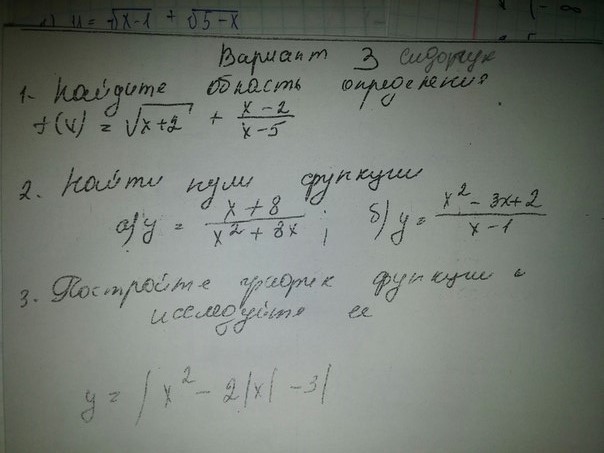 y = √x-1 + √5-x
Вариант 3 Сидорчук
1. Найдите область определения
f(x) = √x+2 + x-2/x-5
2. Найти нули функции
а) y = x+8/x²+8x ; б) y = x²-3x+2/x-1
3. Постройте график функции и
исследуйте ее
y = |x² - 2|x| - 3|